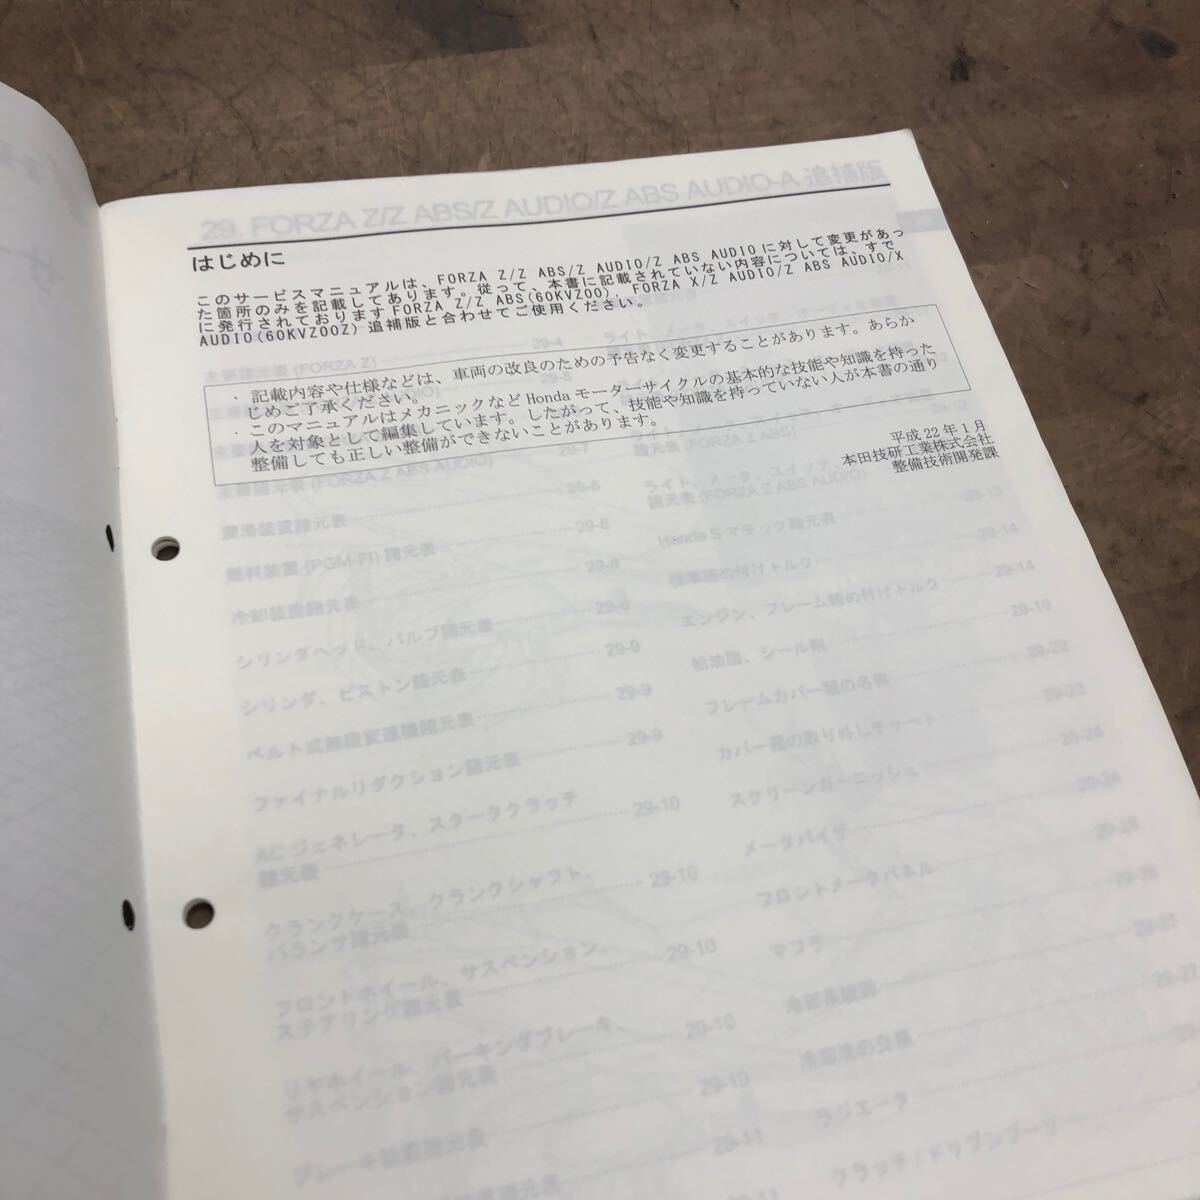 29. FORZA Z/Z ABS/Z AUDIO/Z ABS AUDIO-A 追補版
はじめに
このサービスマニュアルは、FORZA Z/Z ABS/Z AUDIO/Z ABS AUDIO に対して変更があっ
た箇所のみを記載してあります。従って、本書に記載されていない内容については、すで
に発行されております FORZA Z/Z ABS(60KVZ00)、FORZA X/Z AUDIO/Z ABS AUDIO/X
AUDIO(60KVZ00Z)追補版と合わせてご使用ください。
・ 記載内容や仕様などは、車両の改良のための予告なく変更することがあります。あらか
じめご了承ください。
・ このマニュアルはメカニックなど Honda モーターサイクルの基本的な技能や知識を持った
人を対象として編集しています。したがって、技能や知識を持っていない人が本書の通り
整備しても正しい整備ができないことがあります。
平成 22 年 1 月
本田技研工業株式会社
整備技術開発課
主要諸元表 (FORZA Z) 29-4
主要諸元表 (FORZA Z ABS AUDIO) 29-7
潤滑装置諸元表 29-8
燃料装置 (PGM-FI) 諸元表 29-8
冷却装置諸元表 29-8
シリンダヘッド、バルブ諸元表 29-8
シリンダ、ピストン諸元表 29-9
ベルト式無段変速機諸元表 29-9
ファイナルリダクション諸元表 29-9
AC ジェネレータ、スタータクラッチ
諸元表 29-10
クランクケース、クランクシャフト、
バランサ諸元表 29-10
フロントホイール、サスペンション、
ステアリング諸元表 29-10
リヤホイール、パーキングブレーキ、
サスペンション諸元表 29-10
ブレーキ装置諸元表 29-10
諸元表 (FORZA Z ABS) 29-12
ライト、メータ、スイッチ、
諸元表 (FORZA Z ABS AUDIO) 29-13
Honda S マチック諸元表 29-14
標準締め付けトルク 29-14
エンジン、フレーム締め付けトルク 29-14
給油脂、シール剤 29-19
フレームカバー類の名称 29-22
カバー類の取り外しチャート 29-23
スクリーンガーニッシュ 29-24
メータバイザ 29-24
フロントメータパネル 29-26
マフラ
冷却系統図
冷却液の交換 29-27
ラジエータ
クラッチ/ドリブンプーリ